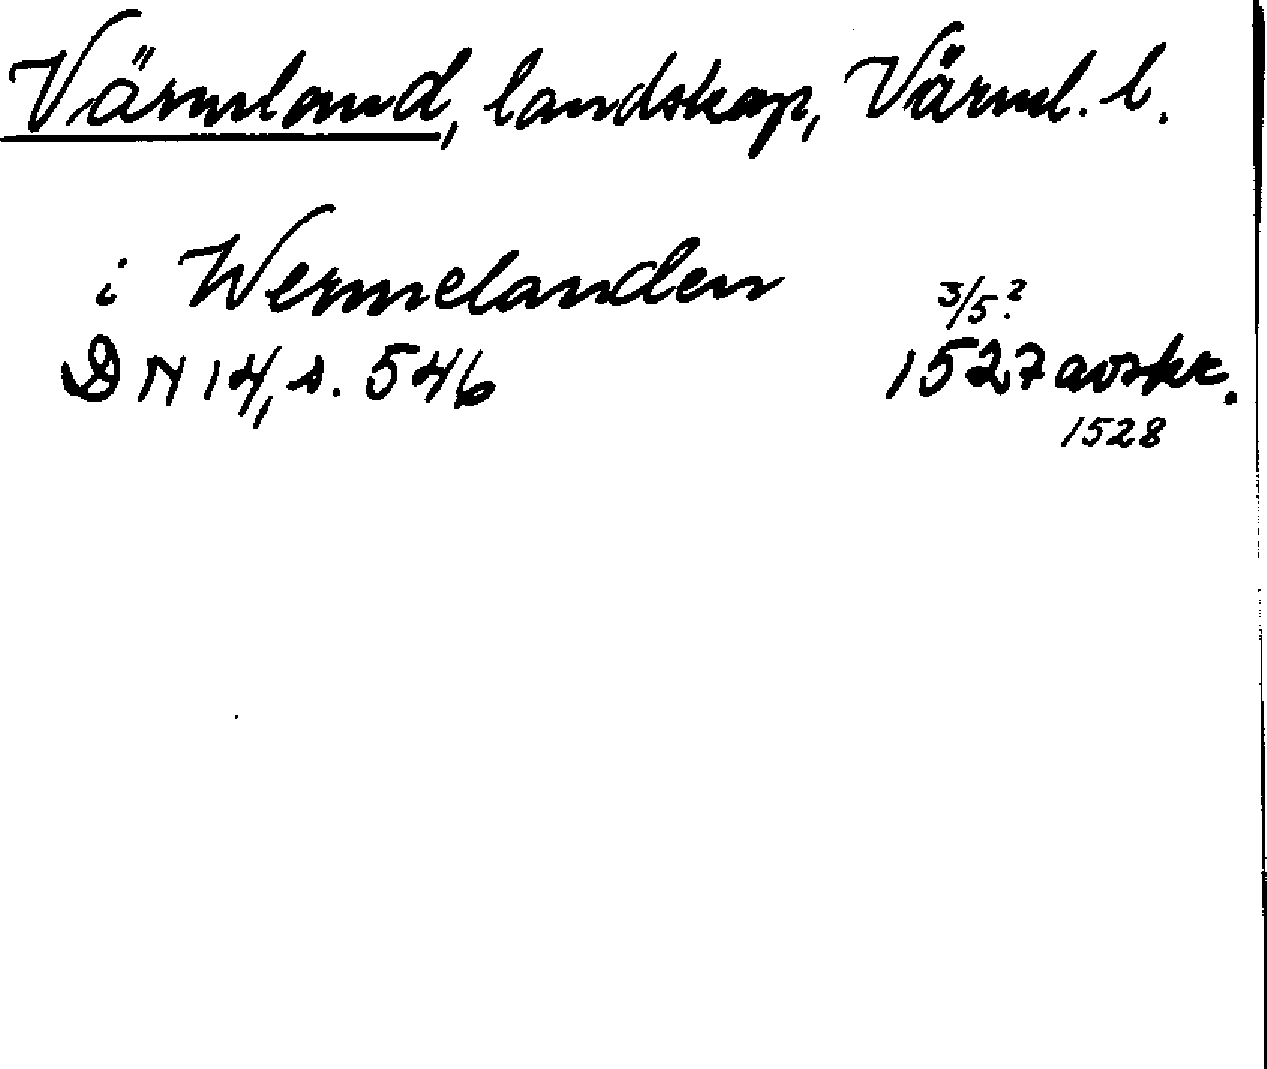 Värmland, landskap, Värml. l.
i Wermelanden 3/5?
DN 14, s. 546 1527 avskr.
1528